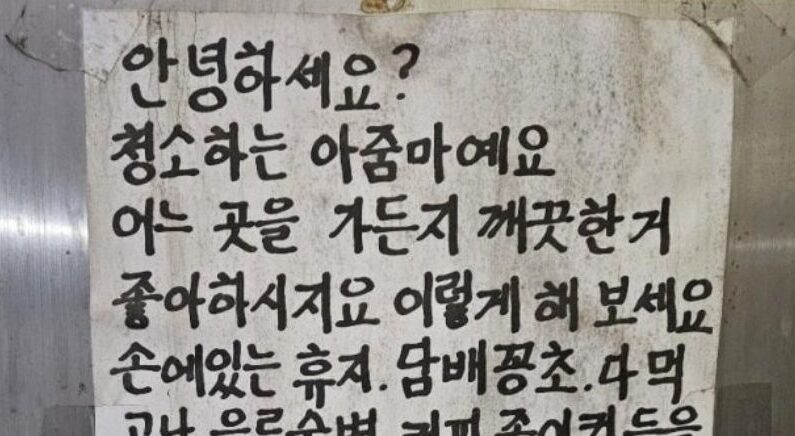 안녕하세요?
청소하는 아줌마예요
어느 곳을 가든지 깨끗한거
좋아하시지요 이렇게 해 보세요
손에있는 휴지.담배꽁초.다 먹